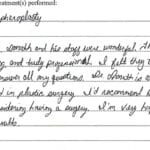 treatment(s) performed:
pharoplasty
Donath and his staff were wonderful. Th
ng and truly professional. I felt they t
answer all my questions. Dr. Donath is a
t in plastic surgery. I'd recommend h
sidering having a surgery. I'm very hap
sults.